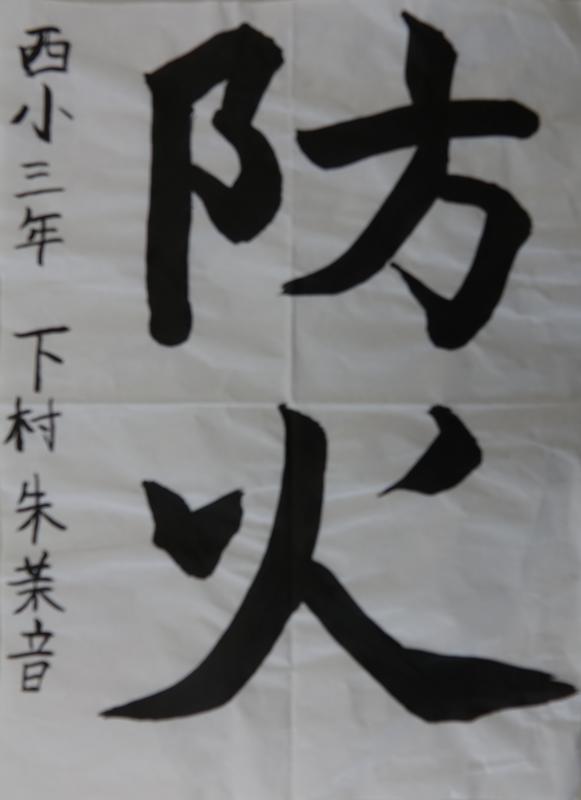 防火
西小三年 下村朱茉音